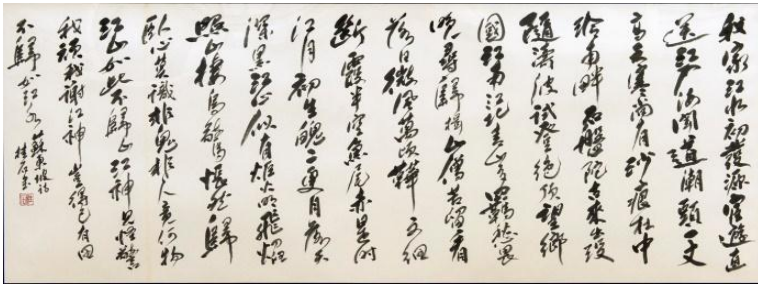 我家江水初發源宦遊直
送江入海聞道潮頭一丈
高天寒尚有沙痕在中
泠南畔石盤陀古來出沒
隨濤波試登絕頂望鄉
國江南江北青山多羈愁畏
晚尋歸楫山僧苦留看
落日微風萬頃鞾文細
斷霞半空魚尾赤是時
江月初生魄二更月落天
深黑江心似有炬火明飛焰
照山棲鳥驚悵然歸
臥心莫識非鬼非人竟何物
江山如此不歸山江神見怪驚
我頑我謝江神豈得已有田
不歸如江水 蘇東坡詩